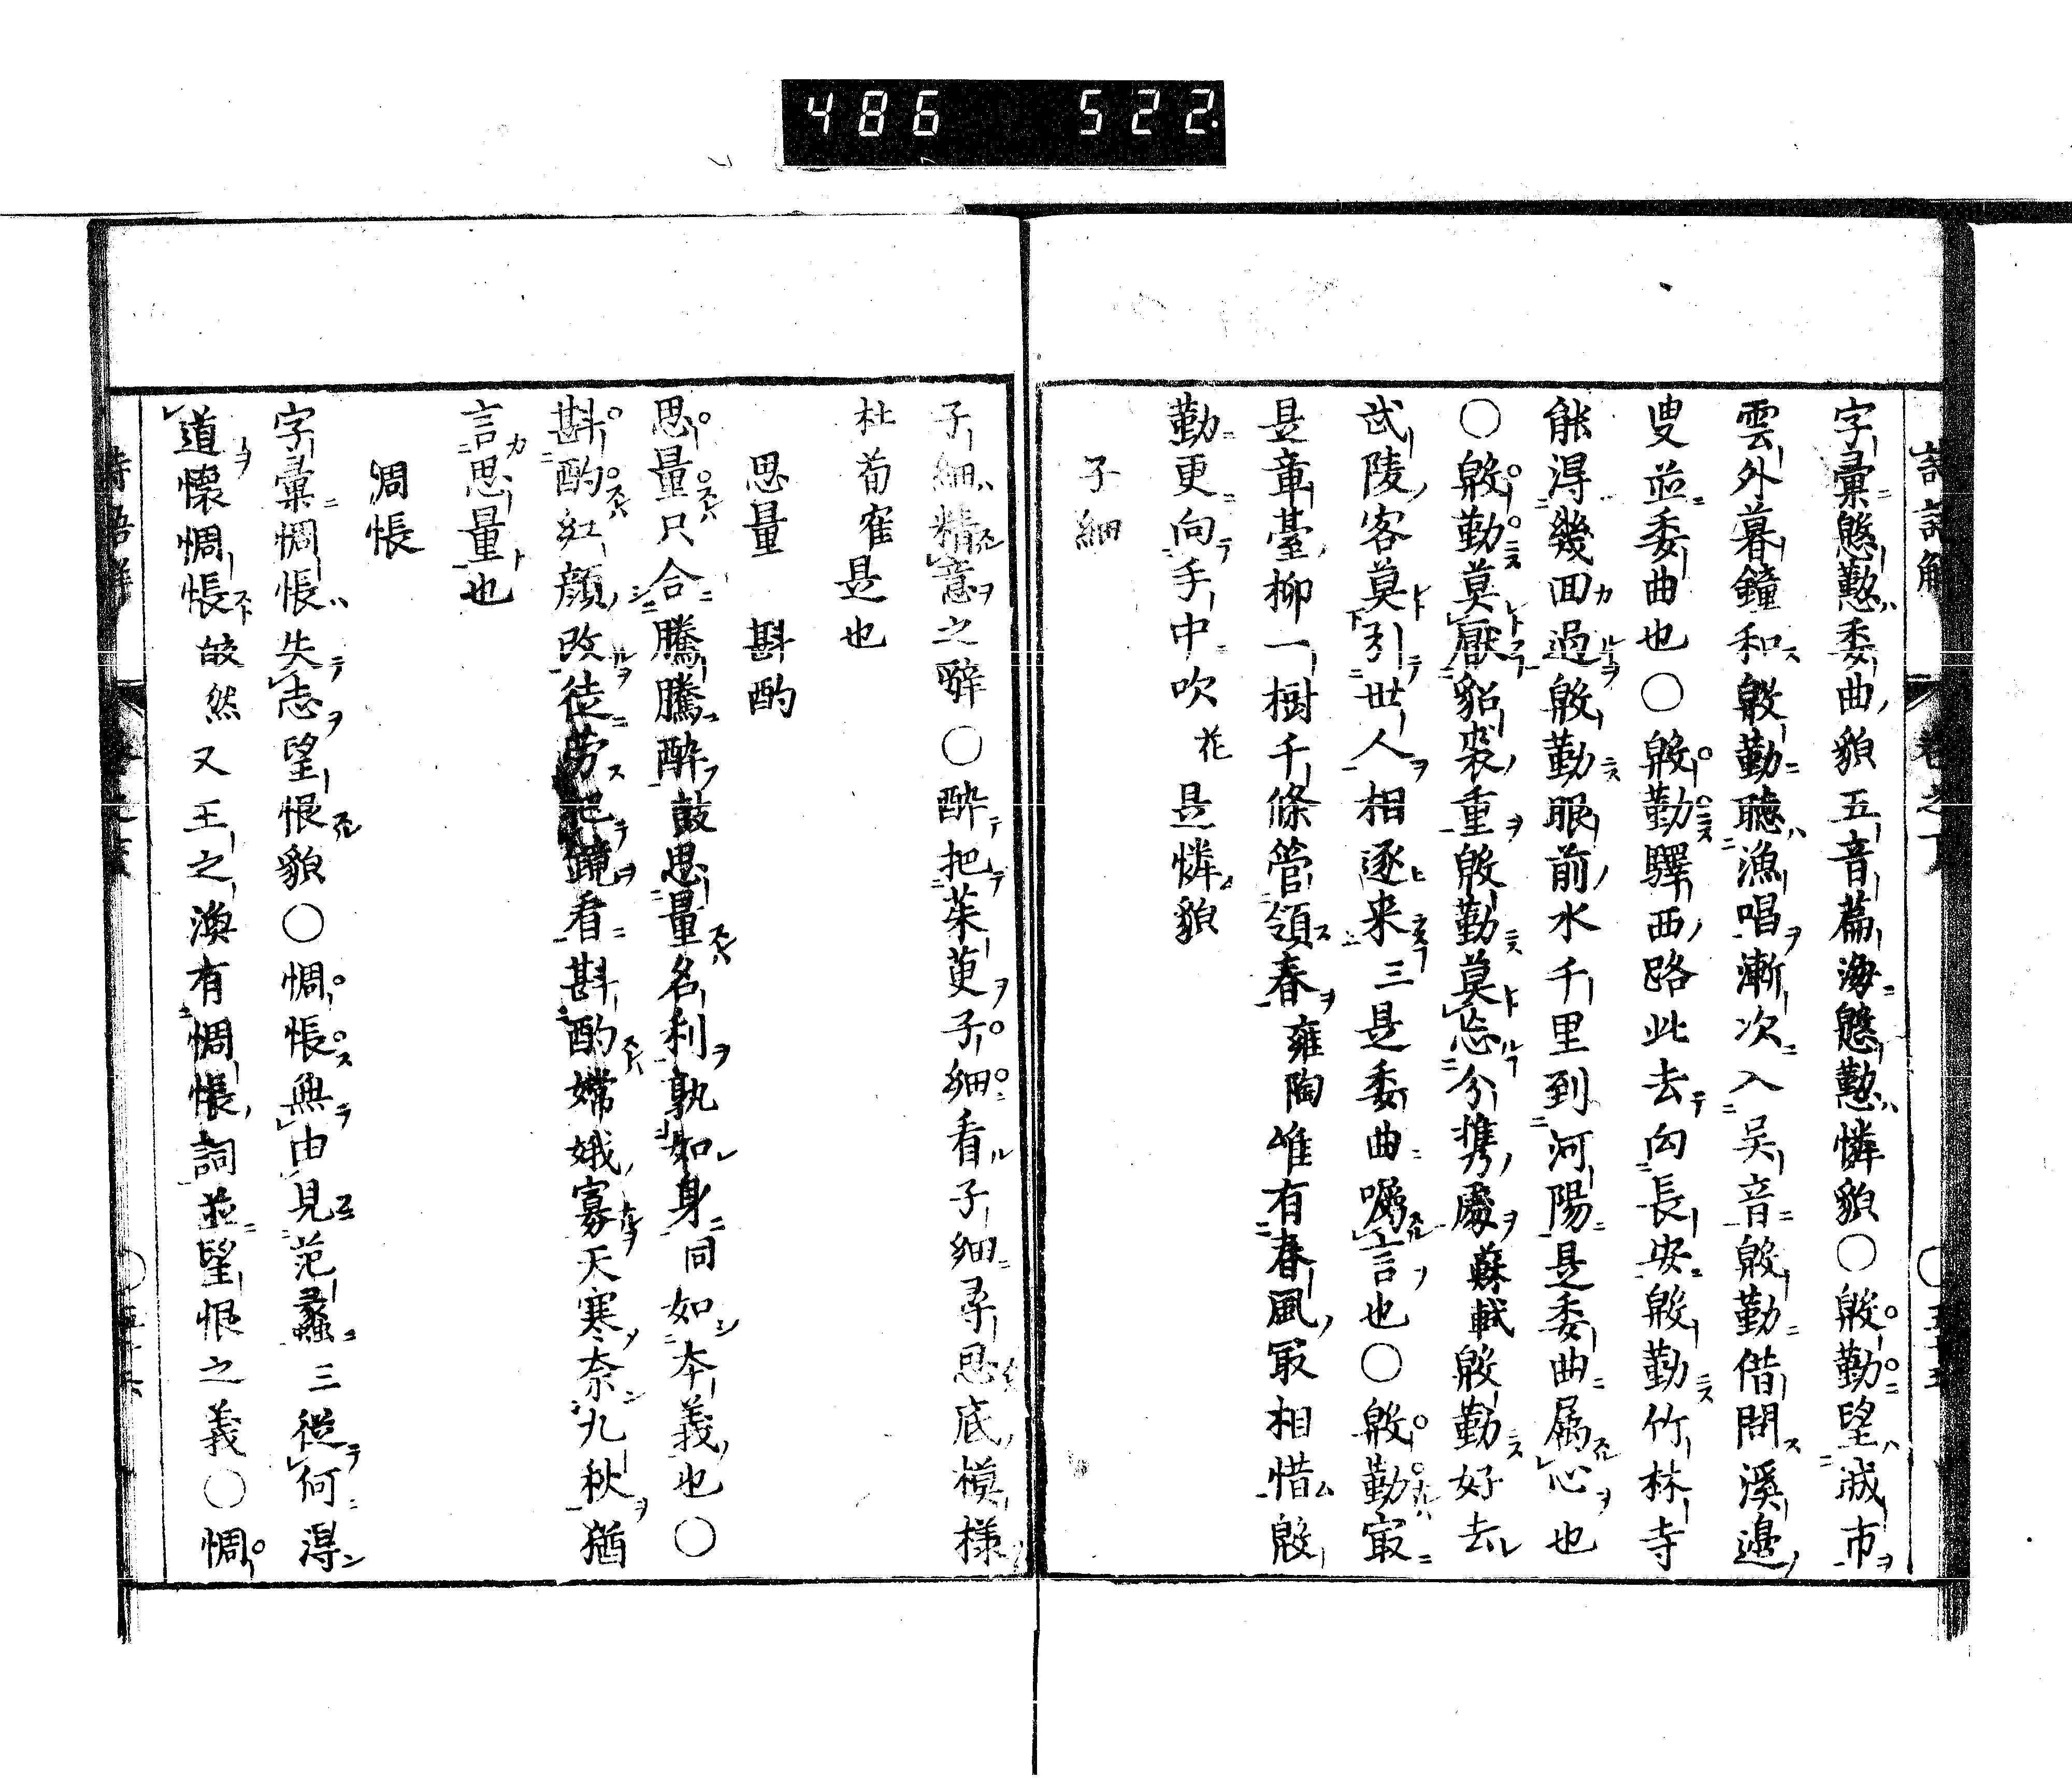 486 522
字彙慇懃委曲貌五音篇海慇懃憐貌〇慇勤望城市
雲外暮鐘和慇勤聽漁唱漸次入吳音慇勤借問溪邉
叟並委曲也〇慇勤驛西路此去向長安慇勤竹林寺
能得幾囬過慇勤眼前水千里到河陽是委曲属心也
〇慇勤莫厭貂裘重慇勤莫忘分携處蘇軾慇勤好去
武陵客莫引世人相逐来三是委曲嘱言也〇慇勤㝡
是章臺柳一樹千條管領春雍陶唯有春風㝡相惜慇
勤更向手中吹花是憐貌
子細
子細精意之辭〇醉把茱萸子細看子細尋思底模様
杜荀隺是也
思量 斟酌
思量只合騰騰醉鼓思量名利孰如身同如本義也〇
斟酌紅顔改徒劳把鏡看斟酌嫦娥寡天寒奈九秋猶
言思量也
凋悵
字彙惆悵失志望恨貌〇惆悵無由見范蠡三從何得
道懐惆悵皎然又王之渙有惆悵詞並望恨之義〇惆